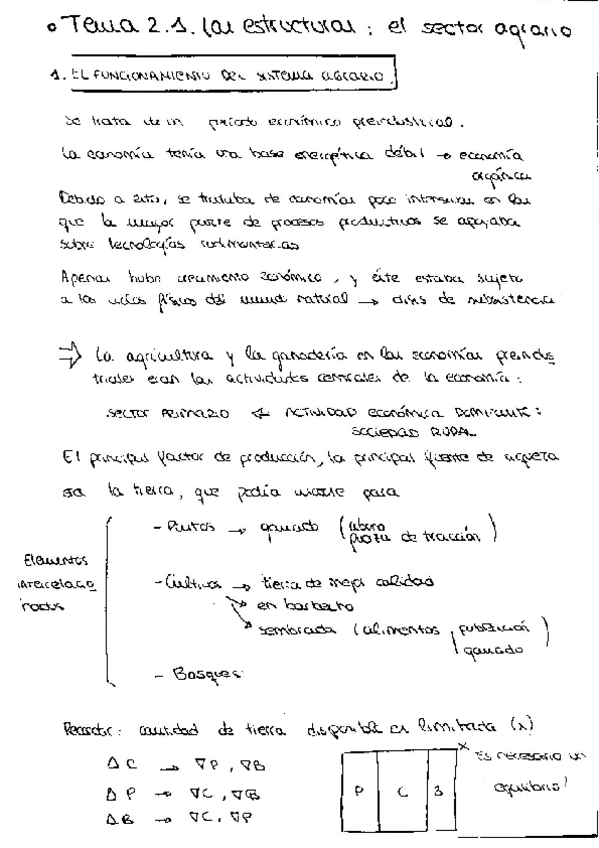 • Tema 2.1. Las estructuras: el sector agrario
1. EL FUNCIONAMIENTO DEL SISTEMA AGRARIO.
Se trata de un período económico preindustrial.
La economía tenía una base energética débil → economía
orgánica
Debido a esto, se trataba de economías poco intensivas en las
que la mayor parte de procesos productivos se apoyaba
sobre tecnologías rudimentarias
Apenas hubo crecimiento económico, y éste estaba sujeto
a los ciclos físicos del mundo natural → crisis de subsistencia
⇒ La agricultura y la ganadería en las economías preindus
triales eran las actividades centrales de la economía:
SECTOR PRIMARIO ← ACTIVIDAD económica DOMINANTE:
SOCIEDAD RURAL
El principal factor de producción, la principal fuente de riqueza
era la tierra, que podía usarse para
Elementos
interrelacio
nados
- Pastos → ganado (abono
fuerza de tracción)
- Cultivos → tierra de mejor calidad
→ en barbecho
→ sembrada (alimentos, población
ganado)
- Bosques
Recordar: cantidad de tierra disponible es limitada (x)
Δ C → ∇P, ∇B
Δ P → ∇C, ∇B
Δ B → ∇C, ∇P
P C B
x Es necesario un
equilibrio!